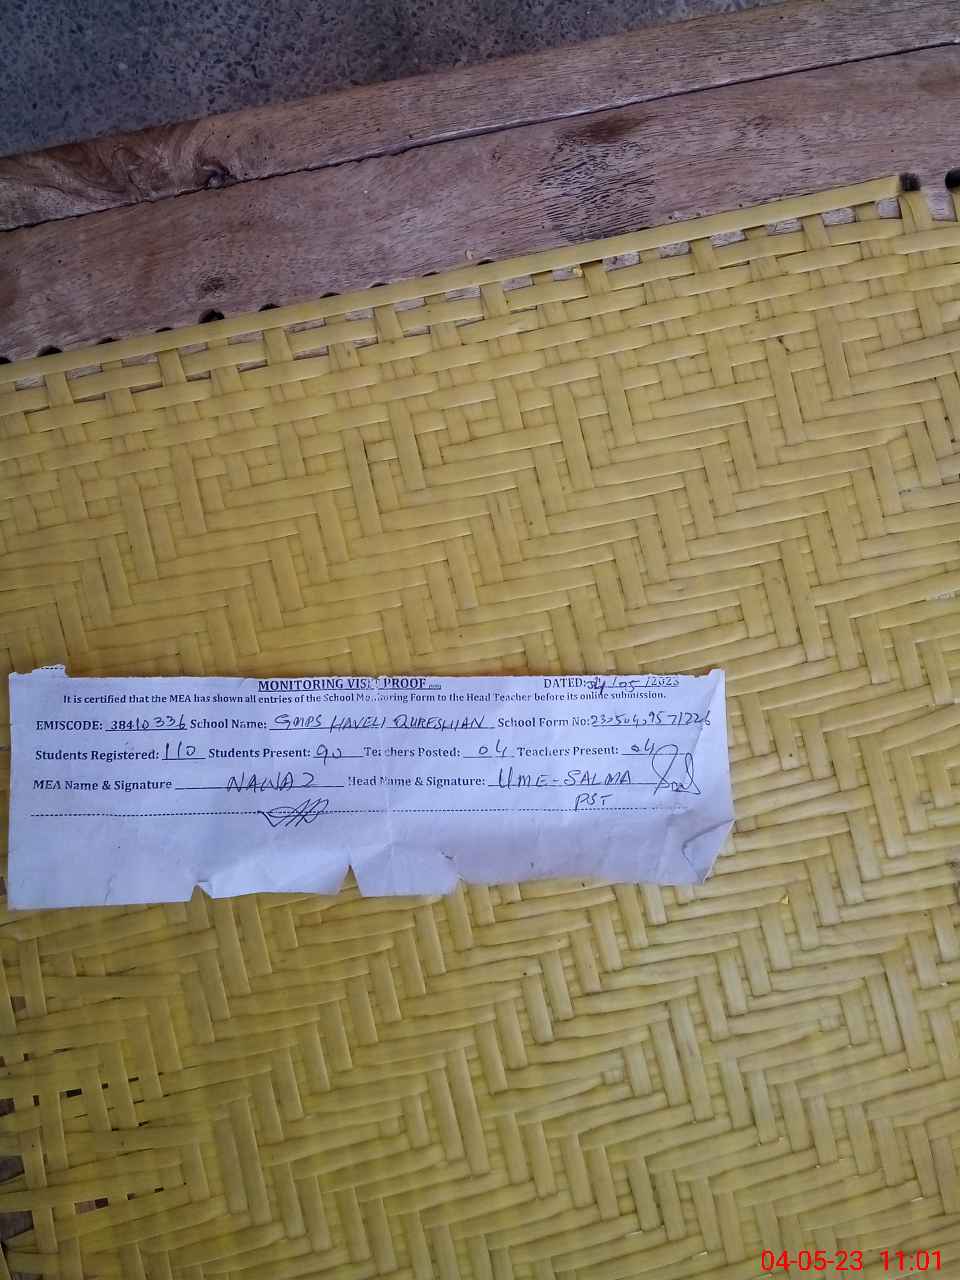 MONITORING VISIT PROOF DATED: 04/05/2023
It is certified that the MEA has shown all entries of the School Monitoring Form to the Head Teacher before its online submission.
EMISCODE: 38410336 School Name: GMPS HAVELI QURESHIAN School Form No:
Students Registered: 110 Students Present: 90 Teachers Posted: 04 Teachers Present: 04
MEA Name & Signature NAWAZ Head Name & Signature: UME-SALMA
PST
04-05-23 11:01